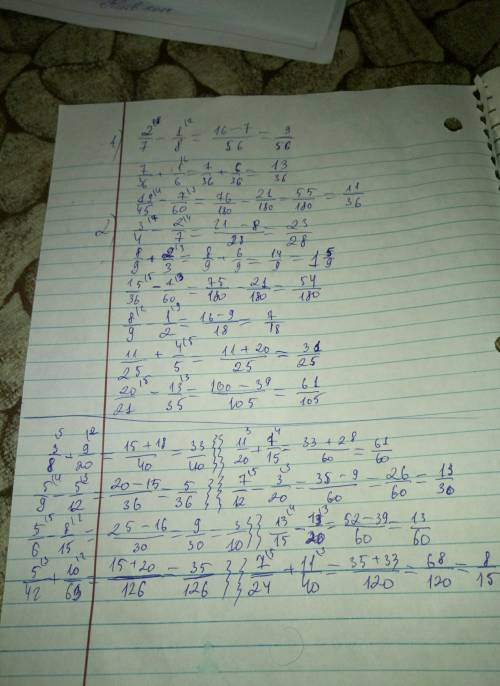 1) 2/7 - 1/8 = (16-7)/56 = 9/56
7/36 + 1/6 = 7/36 + 6/36 = 13/36
19/45 - 7/60 = 76/180 - 21/180 = 55/180 = 11/36
2) 3/4 - 2/7 = (21-8)/28 = 23/28
8/9 + 2/3 = 8/9 + 6/9 = 14/9 = 1 5/9
15/36 - 7/60 = 75/180 - 21/180 = 54/180
8/9 - 1/2 = (16-9)/18 = 7/18
11/25 + 4/5 = (11+20)/25 = 31/25
20/21 - 13/35 = (100-39)/105 = 61/105
3/8 + 9/20 = (15+18)/40 = 33/40 } 11/20 + 7/15 = (33+28)/60 = 61/60
5/9 - 5/12 = (20-15)/36 = 5/36 } 7/12 - 3/20 = (35-9)/60 = 26/60 = 13/30
5/6 - 8/15 = (25-16)/30 = 9/30 = 3/10 } 13/15 - 13/20 = (52-39)/60 = 13/60
5/42 + 10/63 = (15+20)/126 = 35/126 } 7/24 + 11/40 = (35+33)/120 = 68/120 = 8/15